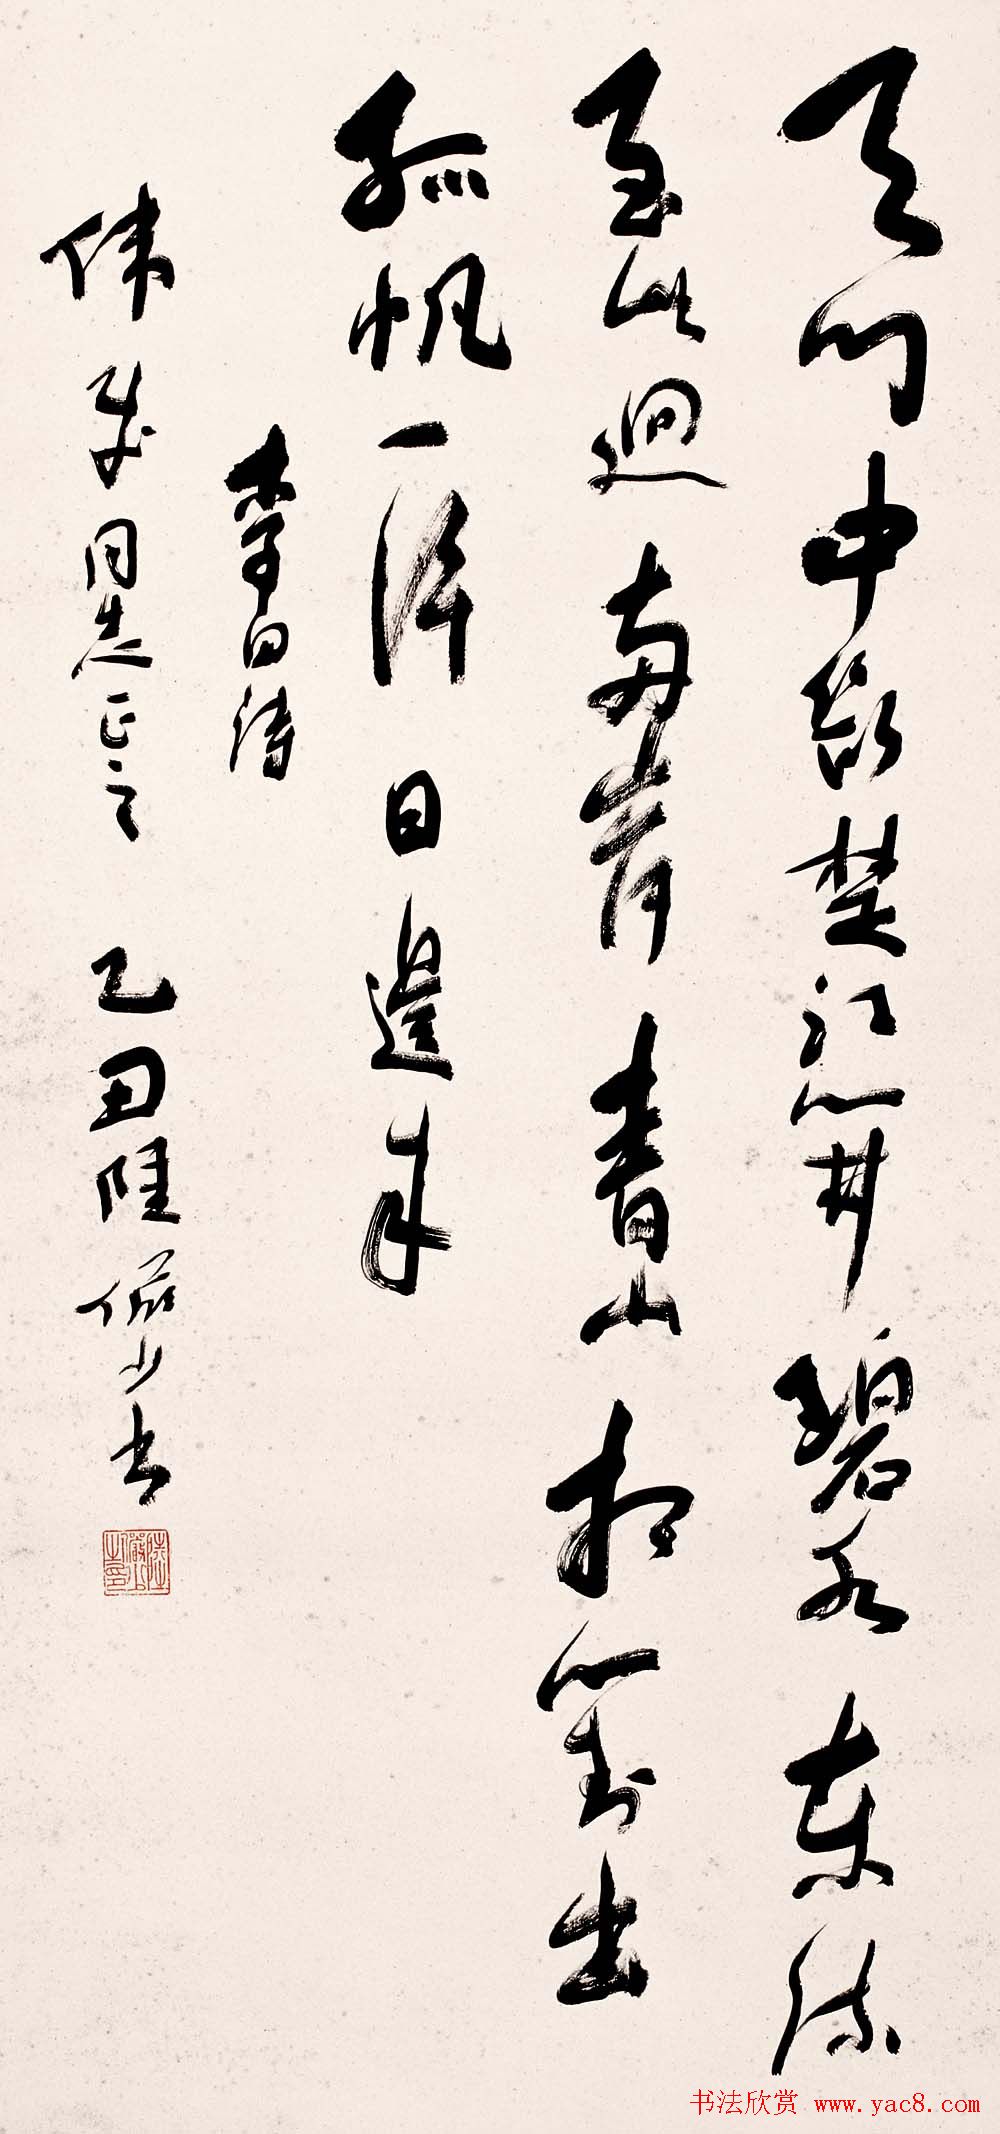 天门中断楚江开碧水东流
至此迴两岸青山相对出
孤帆一片日边来
李白诗
伟成同志正之 乙丑陆俨少书
陆俨少之印
书法欣赏 www.yac8.com